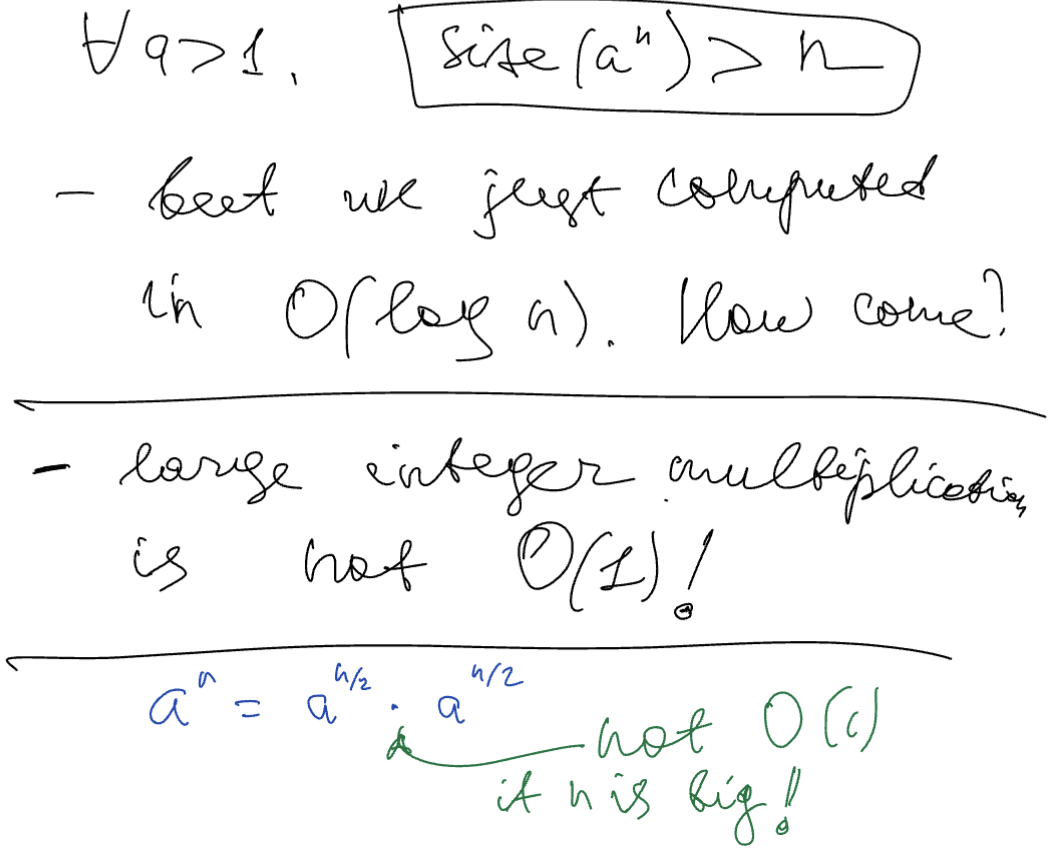 ∀ a>1. size(aⁿ) > n
- but we just computed
in O(log n). How come?
- large integer multiplication
is not O(1)!
aⁿ = a^{n/2} · a^{n/2}
not O(c)
if n is big!!